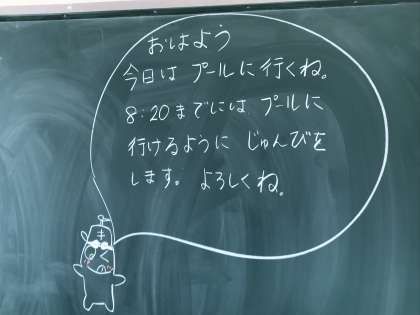 おはよう
今日は プールに行くね。
8:20までには プールに
行けるように じゅんびを
します。 よろしくね。
き